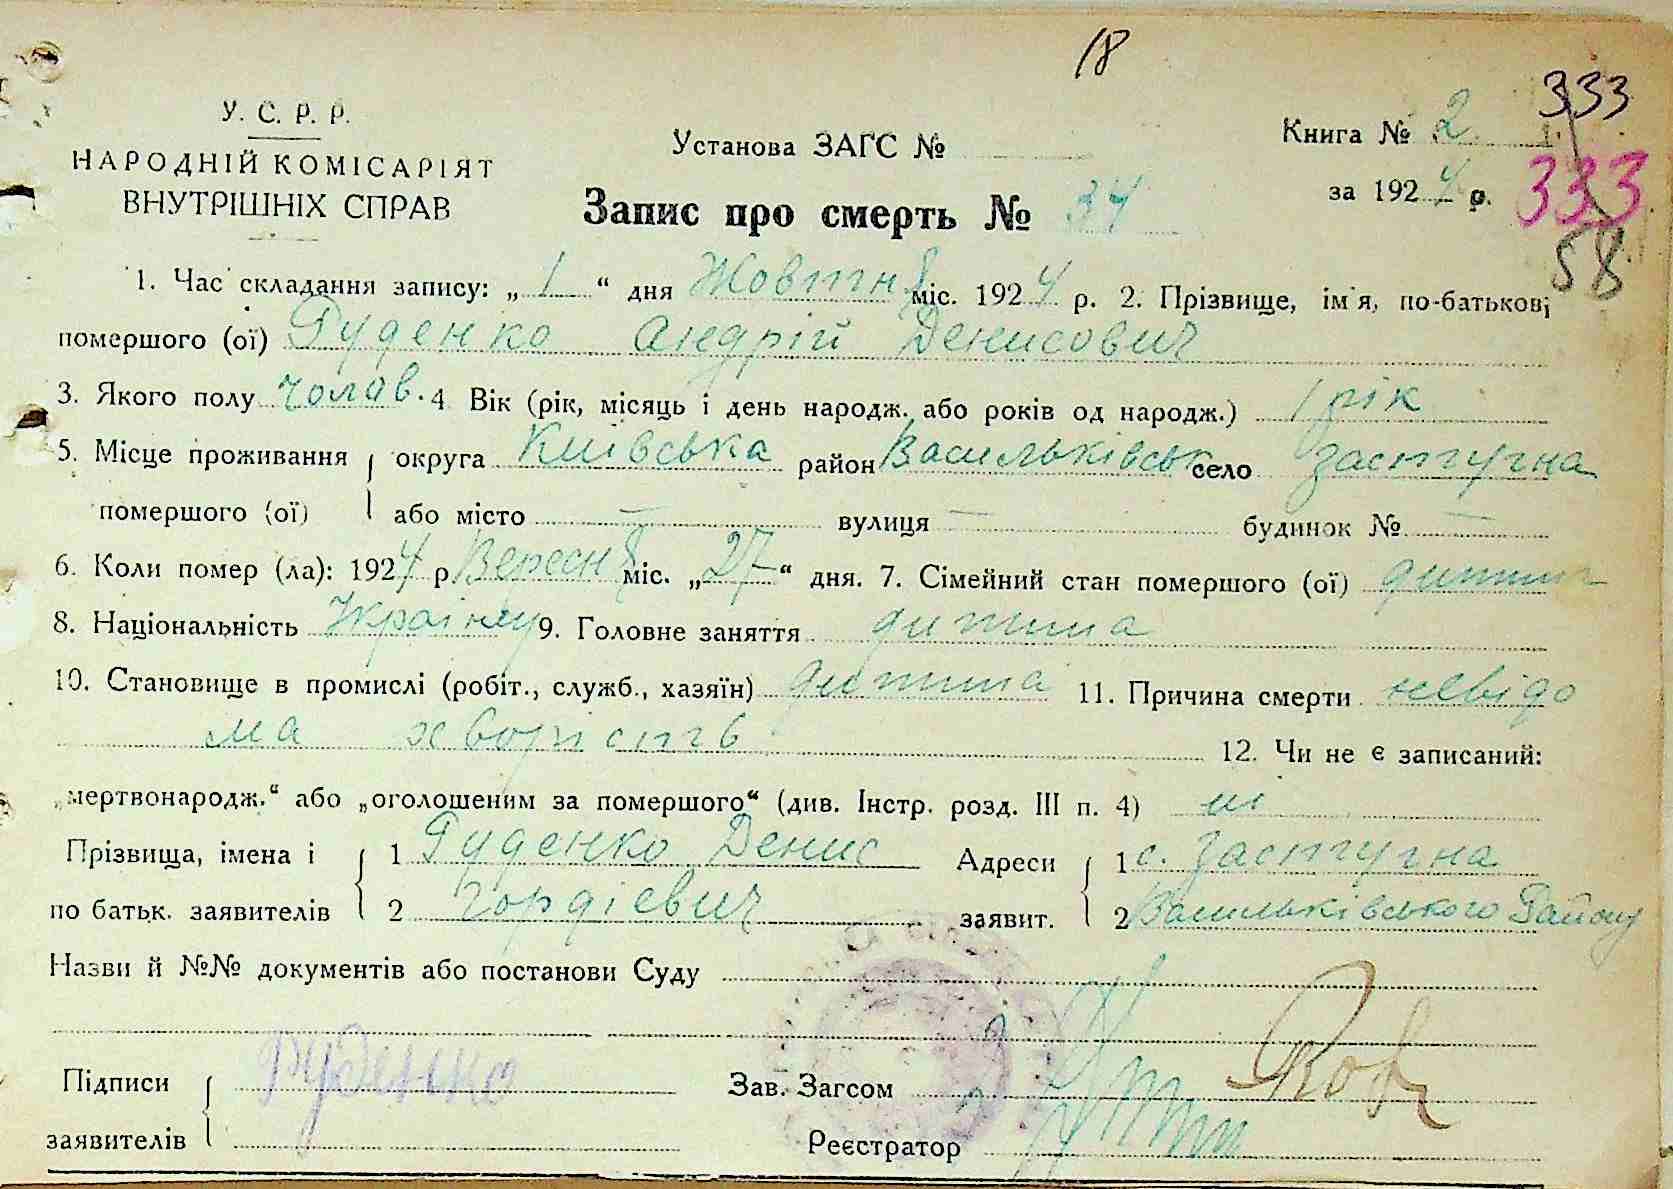 18
333
У. С. Р. Р.
Установа ЗАГС №
Книга № 2
НАРОДНІЙ КОМІСАРІЯТ
ВНУТРІШНІХ СПРАВ
за 1924 р.
333
58
Запис про смерть № 34
1. Час складання запису: „ 1 “ дня Жовтня міс. 1924 р. 2. Прізвище, ім'я, по-батькові
помершого (ої) Руденко Андрій Денисович
3. Якого полу чолов. 4 Вік (рік, місяць і день народж. або років од народж.) 1 рік
5. Місце проживання округа Київська район Васильківськ село Застугна
помершого (ої) або місто — вулиця — будинок № —
6. Коли помер (ла): 1924 р Вересня міс. „ 27 “ дня. 7. Сімейний стан помершого (ої) дитин
8. Національність 9. Головне заняття дитина
10. Становище в промислі (робіт., служб., хазяїн) дитина 11. Причина смерти невідо
ма хворість 12. Чи не є записаний:
„мертвонародж.“ або „оголошеним за помершого“ (див. Інстр. розд. III п. 4) ні
Прізвища, імена і 1 Руденко Денис Адреси 1 с. Застугна
по батьк. заявителів 2 Гордієвич заявит. 2 Васильківського Району
Назви й №№ документів або постанови Суду
Підписи Руденко Зав. Загсом
заявителів Реєстратор